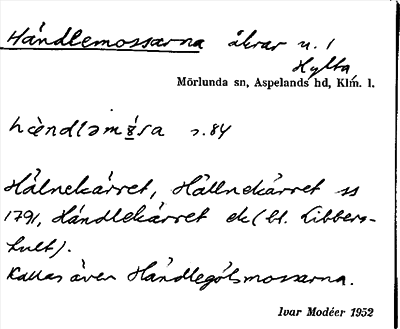 Händlemossarna åkrar n. 1
Hylta
Mörlunda sn, Aspelands hd, Klm. l.
hændləmåsa s. 84
Hälnekärret, Hällnekärret ss
1791, Händlekärret ek (bl. Libbers-
hult).
Kallas även Händlegölsmossarna.
Ivar Modéer 1952